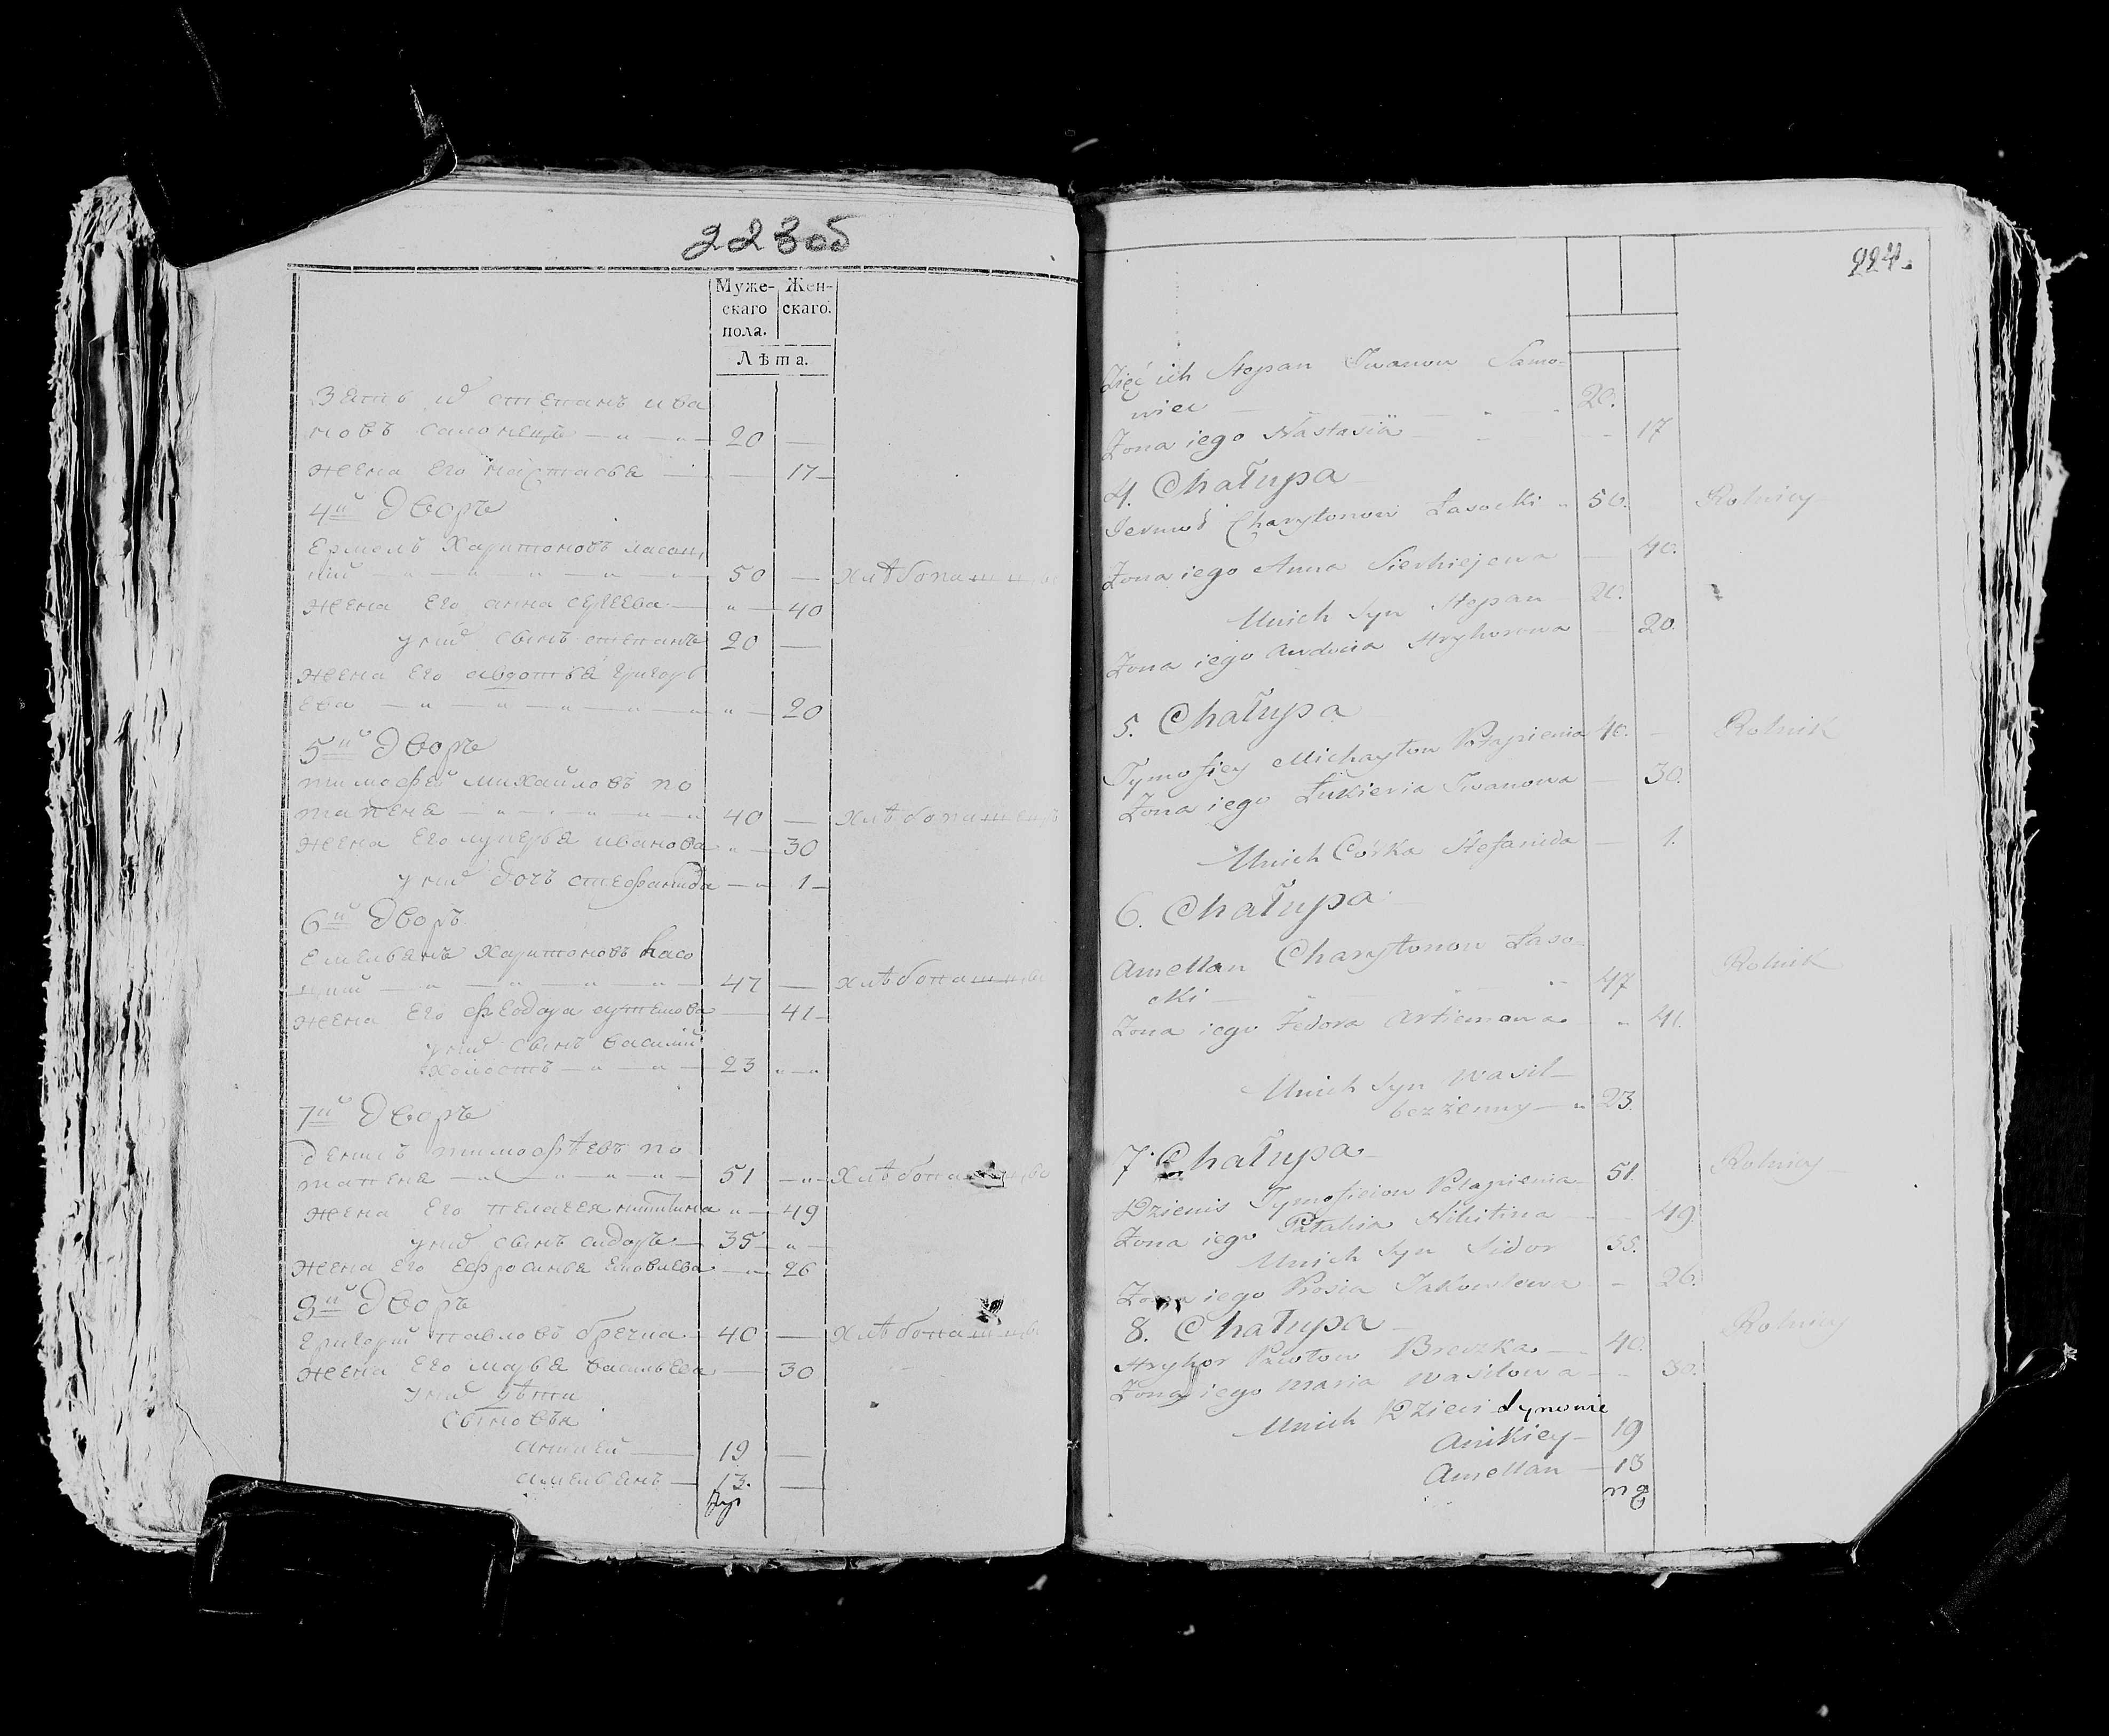 223об
Муже- Жен-
скаго скаго.
пола.
Лѣта.
Зять их степанъ ива
новъ самонецъ — 20 —
жена Его настасья — 17 —
4й Дворъ
Ермолъ Харитоновъ ласоц
кий — 50 — Хлѣбопашцы
жена Его анна сергеева — 40
у них сынъ степанъ 20 —
жена Его авдотья григорь
ева — 20
5й Дворъ
тимофей михайловъ по
тапеня — 40 — Хлѣбопашецъ
жена Его лукерья иванова — 30
у них дочь стефанида — 1 —
6й Дворъ
Емельянъ Харитоновъ Ласо
цкий — 47 — Хлѣбопашцы
жена Его феодора артемова — 41 —
у них сынъ василий
холостъ — 23
7й Дворъ
денисъ тимофѣевъ по
тапеня — 51 — Хлѣбопашцы
жена Его пелагея никитина — 49
у них сынъ сидоръ — 35 —
жена Его Ефросинья Яковлева — 26
8й Дворъ
Григорий павловъ бречка — 40 — Хлѣбопашцы
жена Его марья васильева — 30
у них дѣти
сыновья
аникей — 19 —
амельянъ — 13. —
224.
Zięć ich Stepan Iwanow Samo-
niec — 20.
Żona iego Nastasia — 17
4. Chałupa
Iermoł Charytonow Łasocki 50. Rolnicy
Żona iego Anna Sierhiejewa — 40.
Unich Syn Stepan 20.
Żona iego Audocia Hryhorowa — 20.
5. Chałupa
Tymofiey Michayłow Potapienia 40. — Rolnik
Żona iego Łukieria Iwanowa — 30.
Unich Córka Stefanida — 1.
6. Chałupa
Amellan Charytonow Łaso-
cki — 47 Rolnik
Żona iego Fedora Artiemowa 41.
Unich Syn Wasil
bezżenny — 23.
7. Chałupa
Dzienis Tymofieiow Potapienia 51. Rolnicy
Żona iego Pałahia Nikitina — 49.
Unich Syn Sidor 35.
Żona iego Prosia Iakowlewa — 26.
8. Chałupa Rolnicy
Hryhor Pawłow Breczka — 40.
Żona iego Maria Wasilowa — 30.
Unich Dzieci Synowie
Anikiey — 19
Amellan — 13